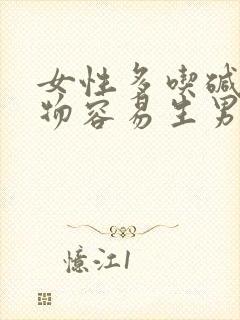 女性多喫碱
物容易生男
憶江1